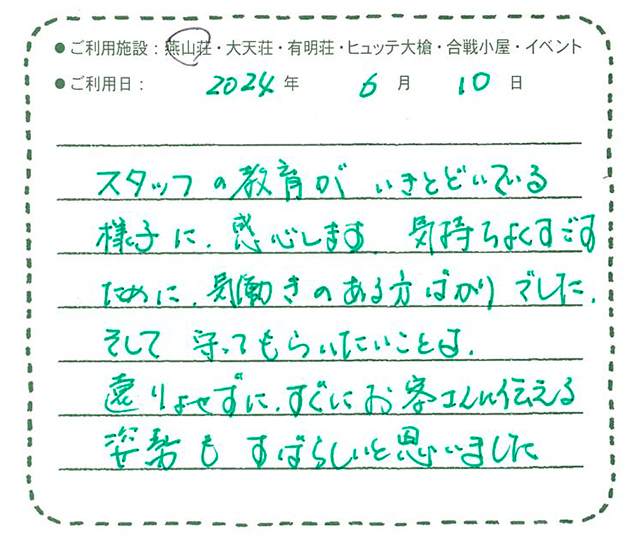 ●ご利用施設：燕山荘・大天荘・有明荘・ヒュッテ大槍・合戦小屋・イベント
●ご利用日： 2024 年 6 月 10 日
スタッフの教育が いきとどいている
様子に、感心します。気持ちよくすごす
ために、気働きのある方ばかりでした。
そして 守ってもらいたいことは、
遠りょせずに、すぐにお客さんに伝える
姿勢も すばらしいと思いました